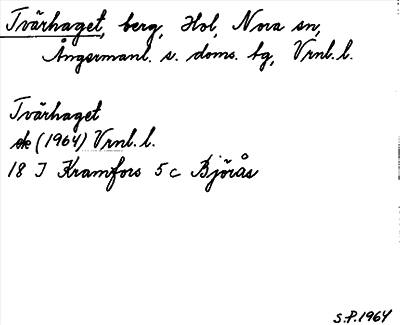 Tvärhaget, berg, Hol, Nora sn,
Ångermanl. s. doms. bg, Vrnl. l.
Tvärhaget
ek (1964) Vrnl. l.
18 I Kramfors 5 c Björås
S.P. 1964